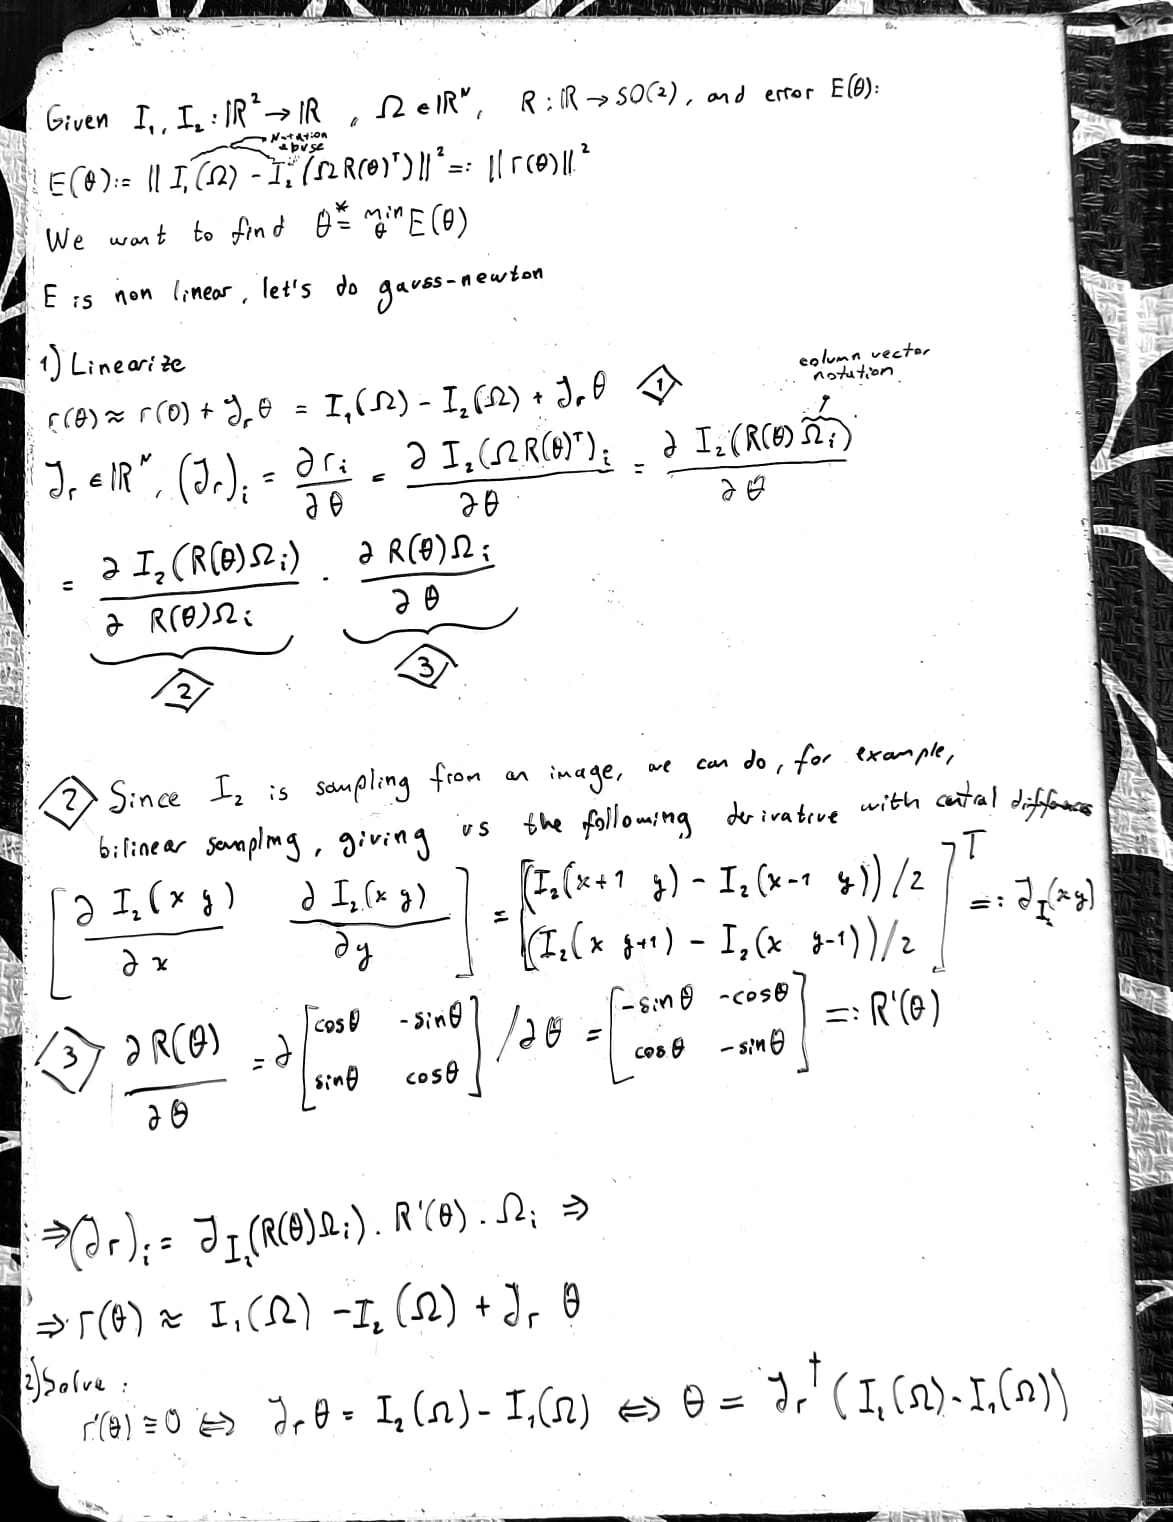 Given I₁, I₂ : ℝ² → ℝ, Ω ∈ ℝᴺ, R : ℝ → SO(2), and error E(θ):
Notation abuse
E(θ) := || I₁(Ω) - I₂(ΩR(θ)ᵀ) ||² =: || r(θ) ||²
We want to find θ* = min_θ E(θ)
E is non linear, let's do gauss-newton
1) Linearize
column vector notation
r(θ) ≈ r(0) + J_r θ = I₁(Ω) - I₂(Ω) + J_r θ ⟨1⟩
J_r ∈ ℝᴺ, (J_r)ᵢ = ∂rᵢ / ∂θ = ∂ I₂(ΩR(θ)ᵀ)ᵢ / ∂θ = ∂ I₂(R(θ) Ωᵢ) / ∂θ
= ∂ I₂(R(θ)Ωᵢ) / ∂ R(θ)Ωᵢ · ∂ R(θ)Ωᵢ / ∂θ
⟨2⟩ ⟨3⟩
⟨2⟩ Since I₂ is sampling from an image, we can do, for example,
bilinear sampling, giving us the following derivative with central differences
[∂ I₂(x y) / ∂x ∂ I₂(x y) / ∂y] = [(I₂(x+1 y) - I₂(x-1 y))/2
(I₂(x y+1) - I₂(x y-1))/2]ᵀ =: J_I(x y)
⟨3⟩ ∂R(θ) / ∂θ = ∂ [cosθ -sinθ
sinθ cosθ] / ∂θ = [-sinθ -cosθ
cosθ -sinθ] =: R'(θ)
⇒ (J_r)ᵢ = J_I₂(R(θ)Ωᵢ) . R'(θ) . Ωᵢ ⇒
⇒ r(θ) ≈ I₁(Ω) - I₂(Ω) + J_r θ
2) Solve:
r'(θ) ≡ 0 ⇔ J_r θ = I₂(Ω) - I₁(Ω) ⇔ θ = J_r† (I₂(Ω) - I₁(Ω))